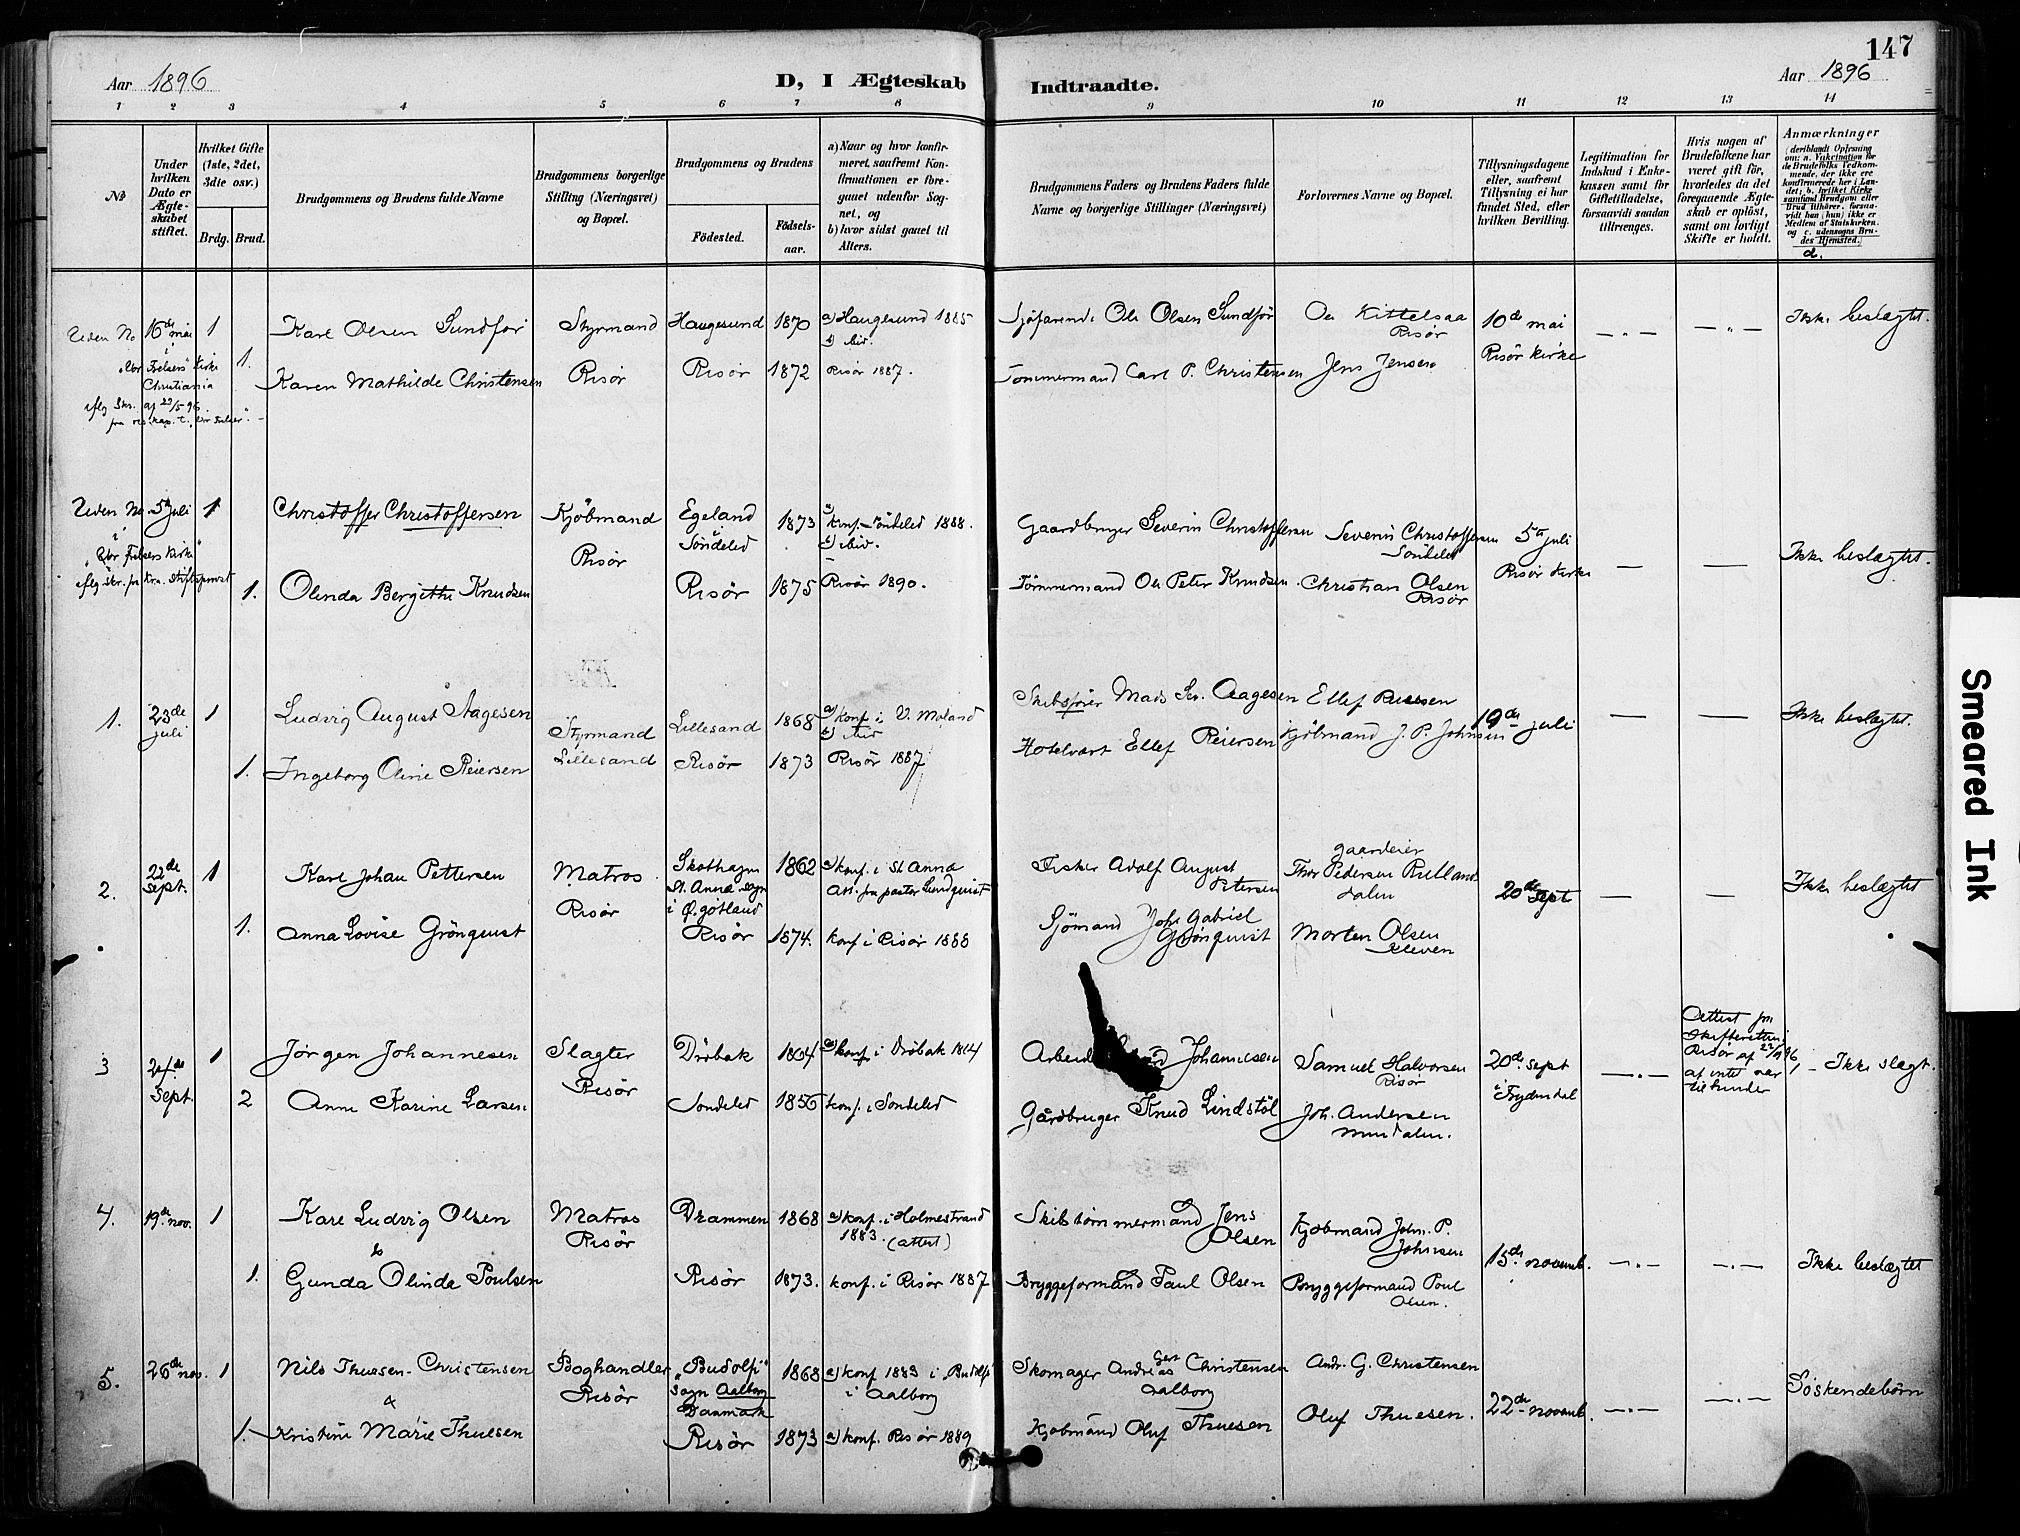 147
Aar 1896
D, I Ægteskab Indtraadte.
Aar 1896
1 2 3 4 5 6 7 8 9 10 11 12 13 14
№
Under hvilken Dato er Ægteskabet stiftet.
Hvilket Gifte (1ste, 2det, 3die osv.)
Brdg. Brud.
Brudgommens og Brudens fulde Navne
Brudgommens borgerlige Stilling (Næringsvei) og Bopæl.
Brudgommens og Brudens
Fødested.
Fødselsaar.
a) Naar og hvor konfirmeret, saafremt Konfirmationen er foregaaet udenfor Sognet, og
b) hvor sidst gaaet til Alters.
Brudgommens Faders og Brudens Faders fulde Navne og borgerlige Stillinger (Næringsvei)
Forlovernes Navne og Bopæl.
Tillysningsdagene eller, saafremt Tillysning ei har fundet Sted, efter hvilken Bevilling.
Legitimation for Indskud i Enkekassen samt for Giftetilladelse, forsaavidt saadan tiltrænges.
Hvis nogen af Brudefolkene har været gift før, hvorledes da det foregaaende Ægteskab er opløst, samt om lovligt Skifte er holdt.
Anmærkninger
(deriblandt Oplysning om: a. Vakcination for de Brudefolks Vedkommende, der ikke ere konfirmerede her i Landet; b. hvilket Kirkesamfund Brudgom eller Brud tilhører, forsaavidt han (hun) ikke er Medlem af Statskirken, og c. udensogns Brudes Hjemsted.)
d.
Uden No 16de mai 1 Karl Olsen Sundför Styrmand Haugesund 1870 a) Haugesund 1885
i "Vor Frelsers" Kirke Christiania
Sjöfarende Ole Olsen Sundför Ole Kittelsaa Risör 10de mai Ikke beslægtet.
1. Karen Mathilde Christensen Risör Risör 1872 Risör 1887.
Tømmermand Carl P. Christensen Jens Jensen Risör Kirke
iflg Skr. af 29/5 96
Uden No. 5te juli 1 Christoffer Christoffersen Kjöbmand Egeland Söndeled 1873 konf. Söndeled 1888.
i Vor Frelsers Kirke
Gaardbruger Severin Christoffersen Severin Christoffersen Söndeled 5te juli Ikke beslægtet.
1. Olinda Bergitte Knudsen Risör Risör 1875 Risör 1890.
Tömmermand Ole Peter Knudsen. Christian Olsen Risör Risör Kirke
1. 23de juli 1 Ludvig August Aagesen Styrmand Lillesand 1868 a) konf i V. Moland
Skibsförer Mads Aagesen Ellef Reiersen 19de juli Ikke beslægtet.
1. Ingeborg Oline Reiersen Lillesand Risör 1873 Risör 1887
Hotelvært Ellef Reiersen Kjöbmand J. P. Johnsen
2. 22de Sept. 1 Karl Johan Pettersen Matros Skothagn St. Anna sogn i Ø. gøtland 1862 a) konf. i St Anna Att. fra pastor Lundquist
Fisker Adolf August Petersen gaardeier Thor Pedersen dalen 20de Sept Ikke beslægtet
1. Anna Lovise Grönquist Risör Risör 1874. konf i Risör 1888
Sjömand Joh. Gabriel Grönquist Morten Olsen Kleven
3 24de Sept. 1 Jörgen Johannesen Slagter Dröbak 1864 a) konf. i Dröbak
Johannesen Samuel Halvorsen Risör 20de sept Attest fra Skifteretten i Risör af 22/9 96, at intet var tilhinder Ikke slægt.
2 Anne Karine Larsen Risör Söndeled 1856 konf. i Söndeled
Gårdbruger Knud Lindstöl Joh. Andersen i Frydendal
4. 19de nov. 1 Karl Ludvig Olsen Matros Drammen 1868 a) konf. i Holmestrand 1883. (attest)
Skibstömmermand Jens Olsen Kjöbmand John. P. Johnsen 15de novemb. Ikke beslægtet
1. Gunda Olinda Poulsen Risör Risör 1873. konf. i Risör 1887
Bryggeformand Paul Olsen Bryggeformand Poul Olsen.
5. 26de nov. 1 Nils Thuesen-Christensen Boghandler "Budolfi" Sogn Aalborg Danmark 1868 a) konf 1883 i Budolfi i Aalborg
Skomager Andreas Gert Christensen Aalborg Andr. G. Christensen 22de novemb. Söskendebörn
&
1. Kristine Marie Thuesen Risör Risör 1873 a) konf. Risör 1889
Kjöbmand Oluf Thuesen Oluf Thuesen.
Smeared Ink